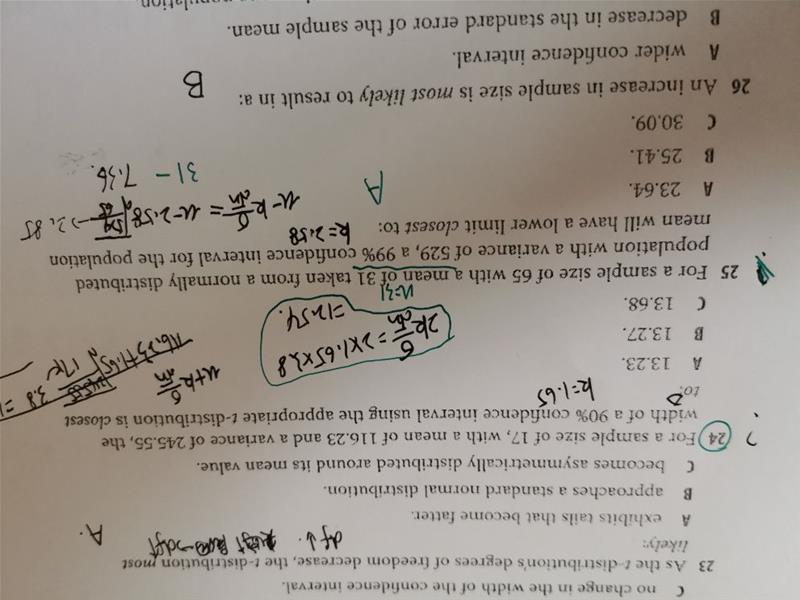 C no change in the width of the confidence interval.
23 As the t-distribution's degrees of freedom decrease, the t-distribution most
likely:
df↓.
A.
A exhibits tails that become fatter.
B approaches a standard normal distribution.
C becomes asymmetrically distributed around its mean value.
? 24 For a sample size of 17, with a mean of 116.23 and a variance of 245.55, the
width of a 90% confidence interval using the appropriate t-distribution is closest
to:
k=1.65
A 13.23.
B 13.27.
C 13.68.
μ+k σ/√n
3.8
2k σ/√n = 2×1.65×3.8
=12.54.
25 For a sample size of 65 with a mean of 31 taken from a normally distributed
μ=31
population with a variance of 529, a 99% confidence interval for the population
mean will have a lower limit closest to:
k=2.58
A 23.64.
B 25.41.
C 30.09.
A
μ-k σ/√n = μ-2.58 2.85
31 - 7.36.
26 An increase in sample size is most likely to result in a:
B
A wider confidence interval.
B decrease in the standard error of the sample mean.